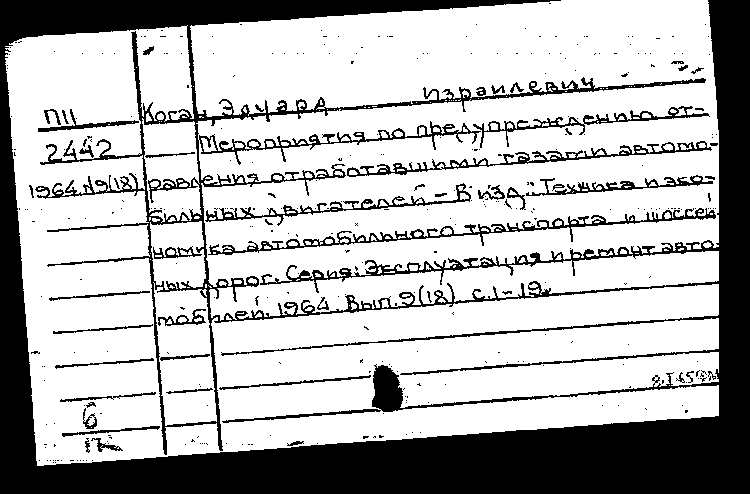 П11 Коган, Эдуард Израилевич
2442 Мероприятия по предупреждению от-
1964 №9(18) равления отработавшими газами автомо-
бильных двигателей – В изд.: Техника и эко-
номика автомобильного транспорта и шоссей-
ных дорог. Серия: Эксплуатация и ремонт авто-
мобилей. 1964. Вып. 9(18) с. 1-19.
6